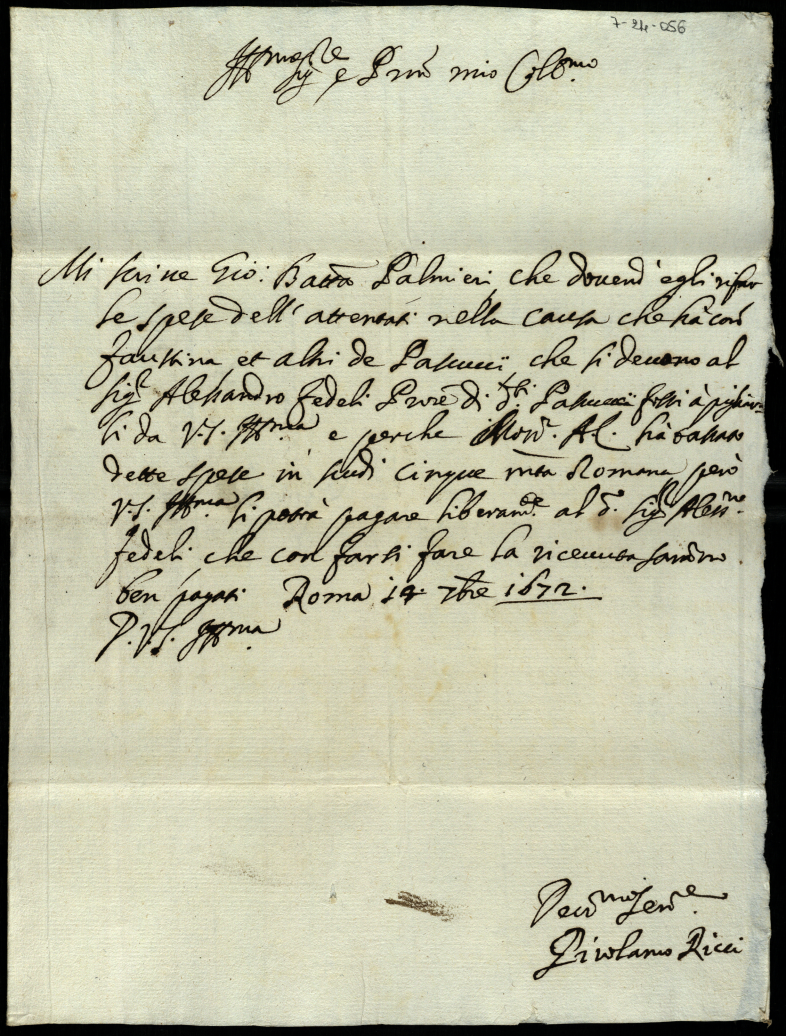 7-24-056
Ill.mo Sig.re e P.rone mio Col.mo
Mi scrive Gio: Batta Palmieri, che dovend' egli rifar
le spese dell' attentati nella causa che hà con
faustina, et altri de Pasucci, che si devono al
sig.r Alessandro fedeli Proc.re di d.ti Pasuccij
li da V.S. Ill.ma e perche Mons. A.C. hà tassato
dette spese in scudi cinque m.ta Romana però
V.S. Ill.ma li potrà pagare liberam.te al d.o sig.r Aless.
fedeli che con farsi fare la ricevuta saranno
ben pagati Roma 14 7bre 1672.
D. V.S. Ill.ma
Dev.mo Ser.re
Girolamo Ricci